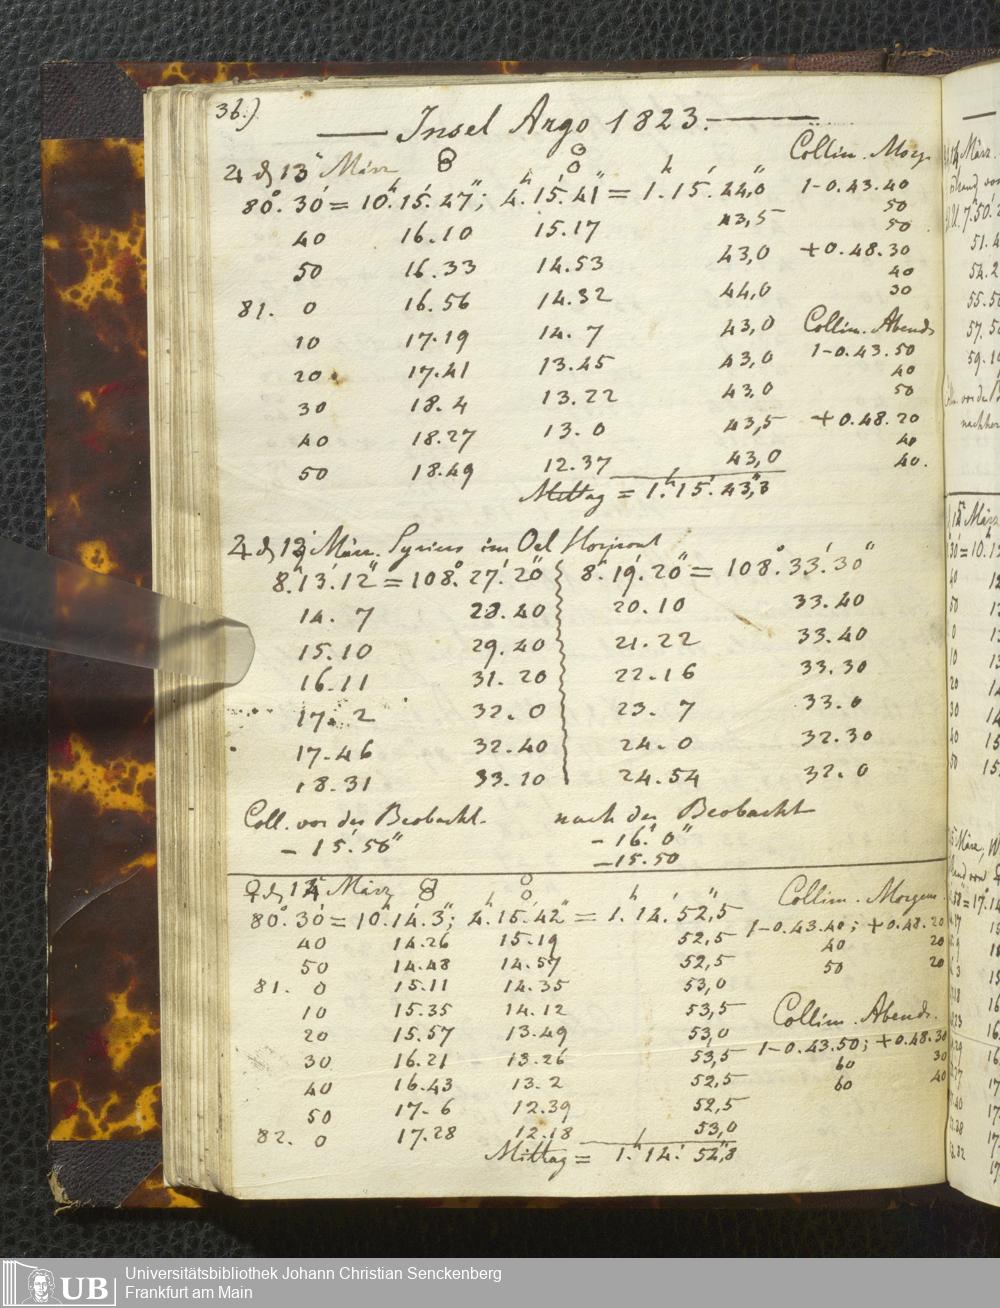 36.)
Insel Argo 1823.
♃ d 13 März Collim. Morg.
80°. 30' = 10h. 15'. 47"; 4h. 15'. 41" = 1h. 15'. 44,0" 1-0.43.40
40 16.10 15.17 43,5 50
50
50 16.33 14.53 43,0 +0.48.30
40
81. 0 16.56 14.32 44,0 30
10 17.19 14. 7 43,0 Collim. Abends
20 17.41 13.45 43,0 1-0.43.50
40
30 18.4 13.22 43,0 50
40 18.27 13. 0 43,5 +0.48.20
40
50 18.49 12.37 43,0 40.
Mittag = 1h. 15'. 43,3"
♃ d 13 März. Syrius im Oel Horizont
8h. 13'. 12" = 108°. 27'. 20" 8h. 19'. 20" = 108°. 33'. 30"
14. 7 28.40 20.10 33.40
15.10 29.40 21.22 33.40
16.11 31.20 22.16 33.30
17. 2 32. 0 23. 7 33. 0
17.46 32.40 24. 0 32.30
18.31 33.20 24.54 32. 0
Coll. vor der Beobacht. nach der Beobacht
- 15'. 50" - 16'. 0"
- 15. 50
♀ d 14 März Collim. Morgens.
80°. 30' = 10h. 14'. 3"; 4h. 15'. 42" = 1h. 14'. 52,5" 1-0.43.40; +0.48.20
40 14.26 15.19 52,5 40 20
50 14.48 14.57 52,5 50 20
81. 0 15.11 14.35 53,0
10 15.35 14.12 53,5 Collim. Abends.
20 15.57 13.49 53,0 1-0.43.50; +0.48.30
30 16.21 13.26 53,5 60 30
40 16.43 13. 2 52,5 60 40
50 17. 6 12.39 52,5
82. 0 17.28 12.18 53,0
Mittag = 1h. 14'. 52,8"
UB
Universitätsbibliothek Johann Christian Senckenberg
Frankfurt am Main